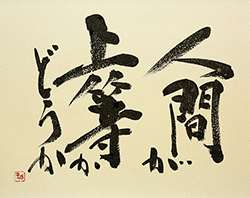 人間が
上等か
どうか